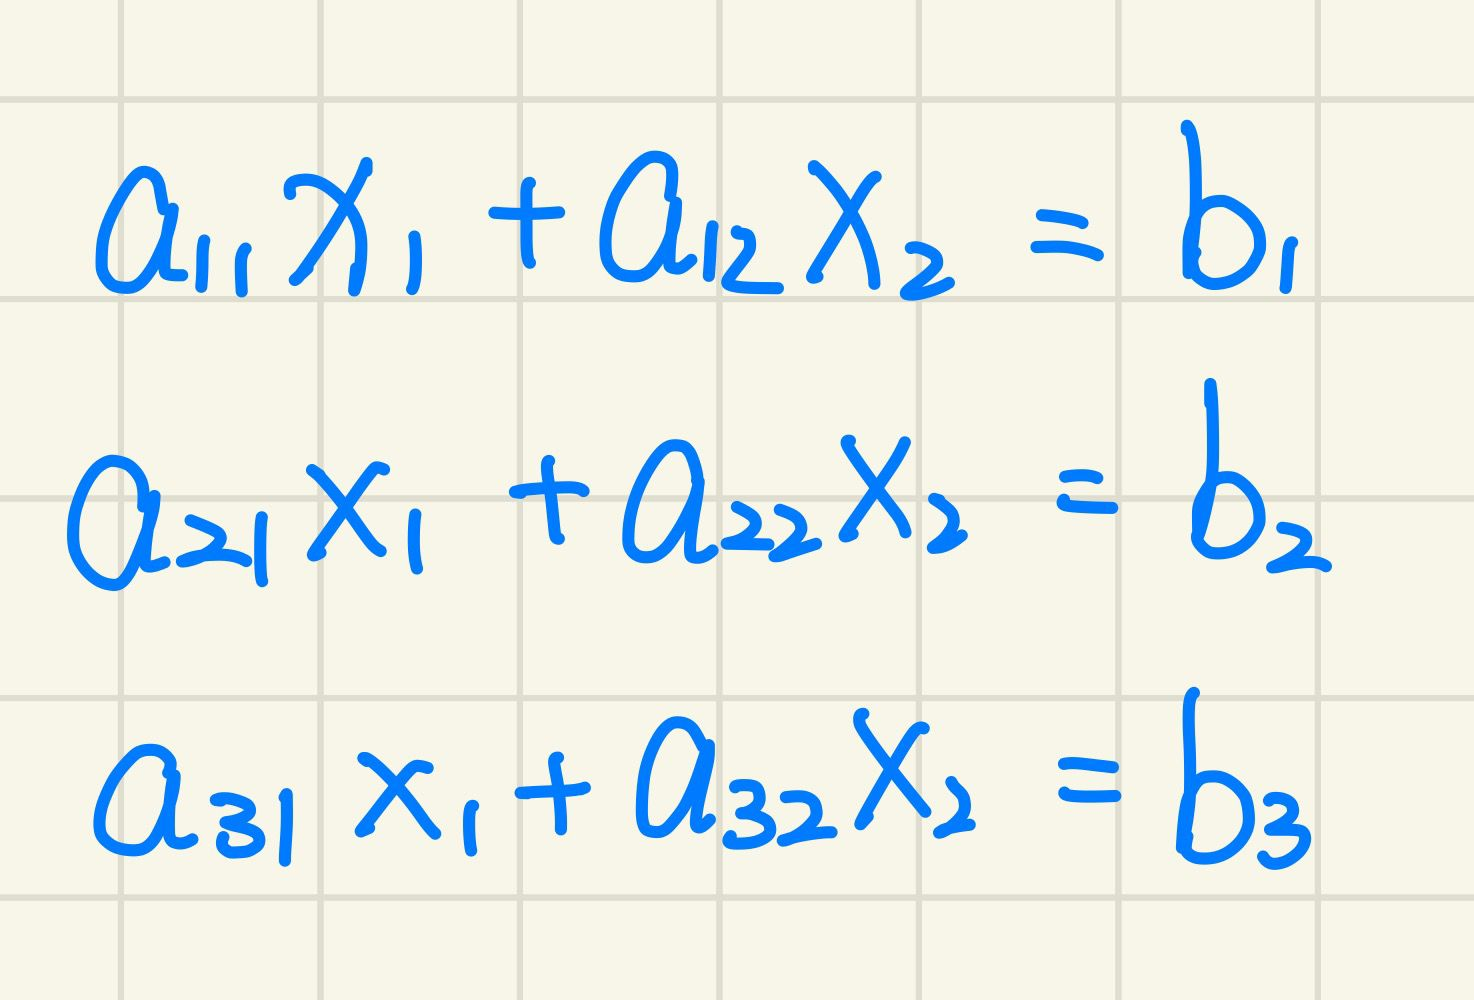 a₁₁x₁ + a₁₂x₂ = b₁
a₂₁x₁ + a₂₂x₂ = b₂
a₃₁x₁ + a₃₂x₂ = b₃